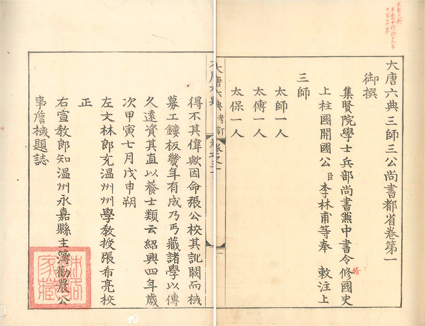 大唐六典三師三公尚書都省卷第一
御撰
集賢院學士兵部尚書兼中書令修國史
上柱國開國公臣李林甫等奉 敕注上
三師
太師一人
太傅一人
太保一人
得不其偉歟因命張公校其訛闕而機
募工鏤板幾年有成乃丐藏諸學以傳
久遠資其直以養士類云紹興四年歲
次甲寅七月戊申朔
左文林郎充溫州州學教授張希亮校
正
右宣教郎知溫州永嘉縣主簿勸農公
事詹棫題誌